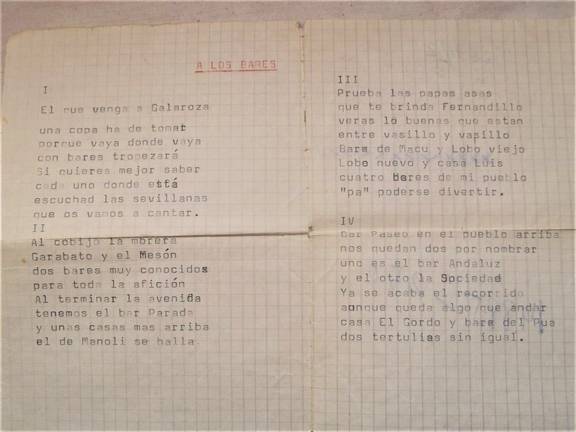 A LOS BARES
I
El que venga a Galaroza
una copa ha de tomar
porque vaya donde vaya
con bares tropezará
Si quieres mejor saber
cada uno donde está
escuchad las sevillanas
que os vamos a cantar.
II
Al cobijo la mbrera
Garabato y el Mesón
dos bares muy conocidos
para toda la afición
Al terminar la avenida
tenemos el bar Parada
y unas casas mas arriba
el de Manoli se halla.
III
Prueba las papas asas
que te brinda Fernandillo
veras lo buenas que estan
entre vasillo y vasillo
Bara de Macu y Lobo viejo
Lobo nuevo y casa Luis
cuatro bares de mi pueblo
"pa" poderse divertir.
IV
Bar Paseo en el pueblo arriba
nos quedan dos por nombrar
uno es el bar Andaluz
y el otro la Sociedad
Ya se acaba el recorrido
aunque queda algo que andar
casa El Gordo y bara del Pua
dos tertulias sin igual.